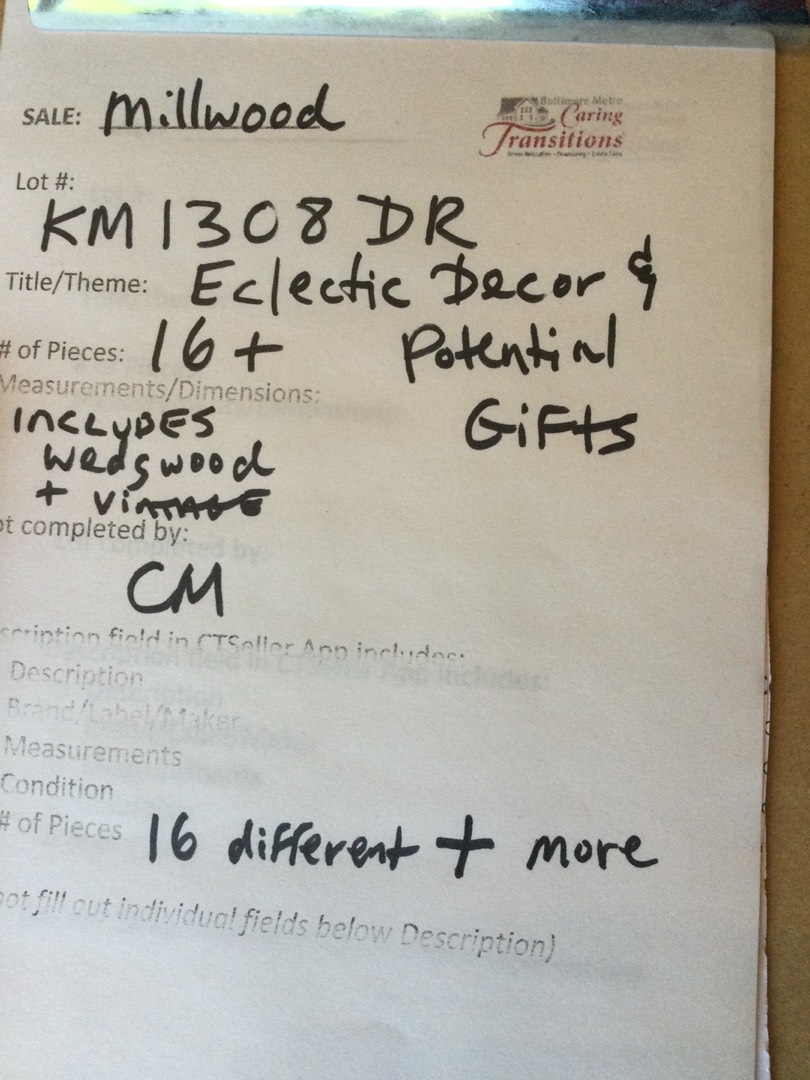 SALE: Millwood
Baltimore Metro
Caring
Transitions
Lot #:
KM 1308 DR
Title/Theme: Eclectic Decor &
# of Pieces: 16+ Potential
Measurements/Dimensions:
INCLUDES GiFts
Wedgwood
+ VINTAGE
ot completed by:
CM
scription field in CTSeller App includes:
Description
Brand/Label/Maker
Measurements
Condition
# of Pieces 16 different + more
not fill out individual fields below Description)